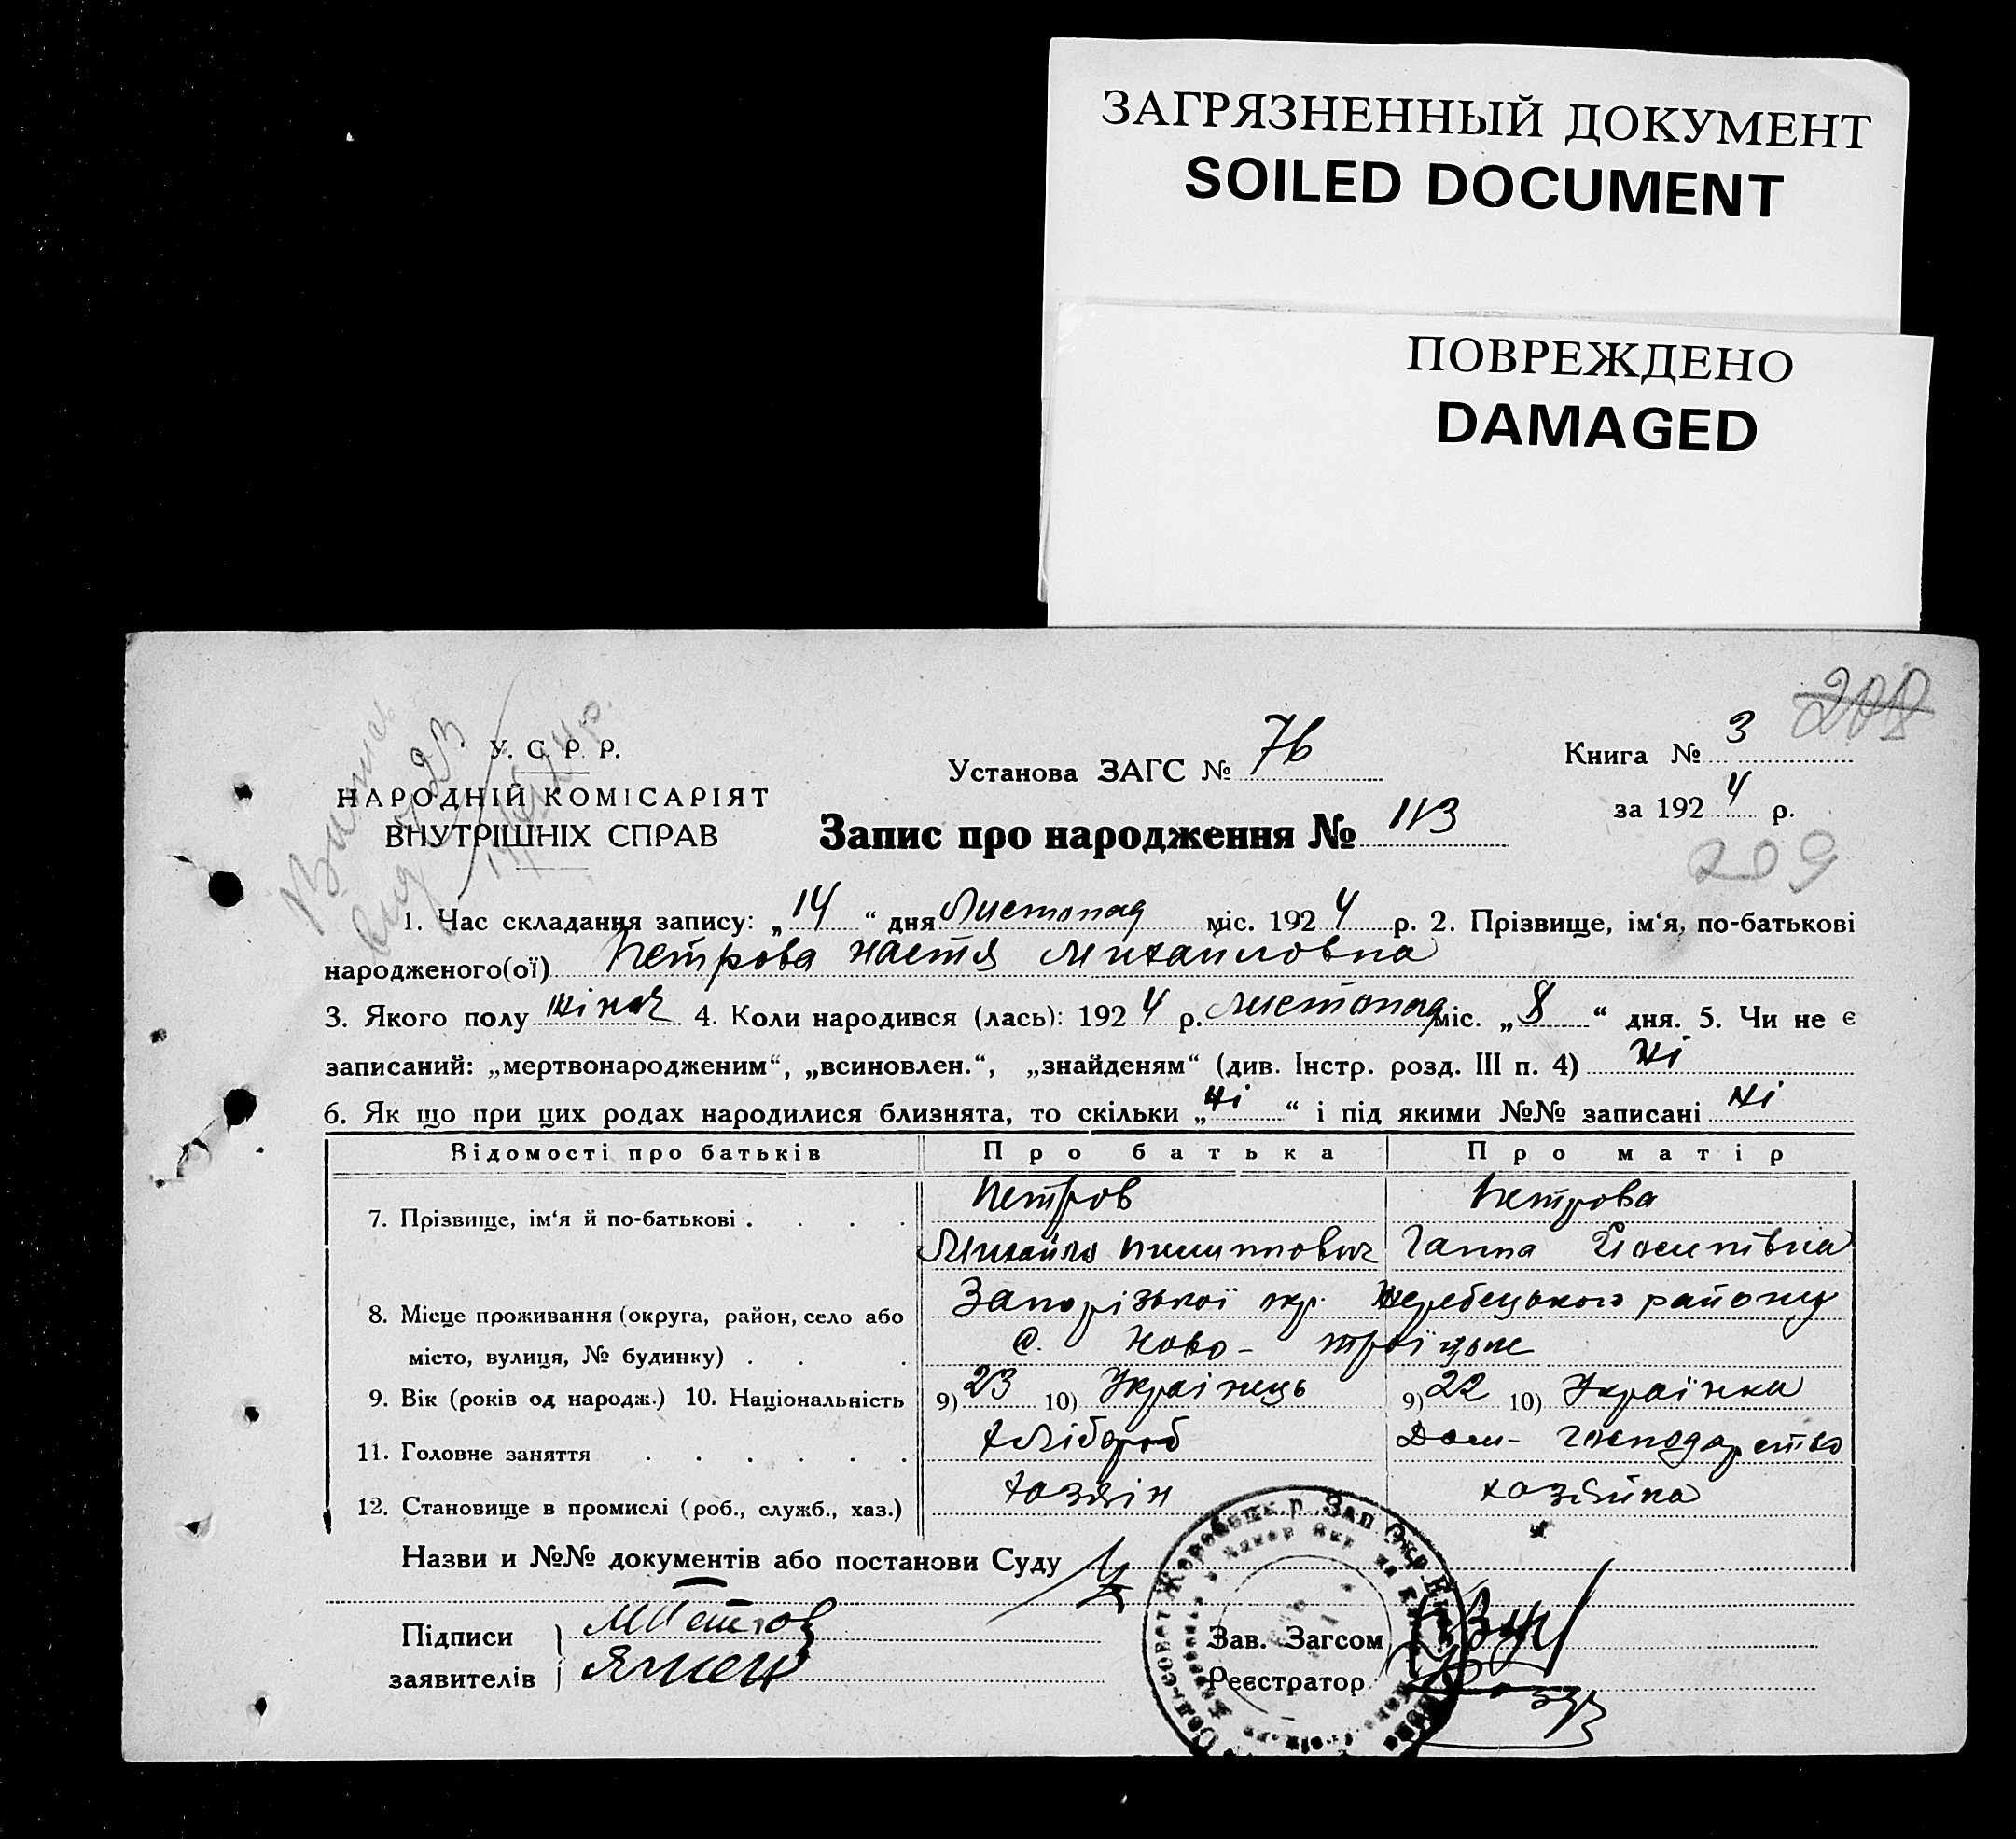 ЗАГРЯЗНЕННЫЙ ДОКУМЕНТ
SOILED DOCUMENT
ПОВРЕЖДЕНО
DAMAGED
208
У. С. Р. Р.
НАРОДНІЙ КОМІСАРІЯТ
ВНУТРІШНІХ СПРАВ
Установа ЗАГС № 76
Книга № 3
за 1924 р.
Запис про народження № 113
209
1. Час складання запису: „14“ дня Листопад міс. 1924 р. 2. Прізвище, ім‘я, по-батькові
народженого(ої) Петрова Настя Михайловна
3. Якого полу жіноч 4. Коли народився (лась): 1924 р. листопад міс. „8“ дня. 5. Чи не є
записаний: „мертвонародженим“, „всиновлен.“, „знайденям“ (див. Інстр. розд. III п. 4) Ні
6. Як що при цих родах народилися близнята, то скільки „Ні“ і під якими №№ записані Ні
Відомості про батьків Про батька Про матір
7. Прізвище, ім‘я й по-батькові . . . . Петров Петрова
Михайло Пилиппович Ганна Йосипівна
8. Місце проживання (округа, район, село або Запорізької окр. Жеребецького району
місто, вулиця, № будинку) . . . с. Ново-троїцьке
9. Вік (років од народж.) 10. Національність 9) 23 10) Українець 9) 22 10) Українка
11. Головне заняття . . . . . . Хлібороб Дом-господарство
12. Становище в промислі (роб., служб., хаз.) хозяін хозяйка
Назви и №№ документів або постанови Суду
Підписи заявителів МПетров
Зав. Загсом
Реєстратор